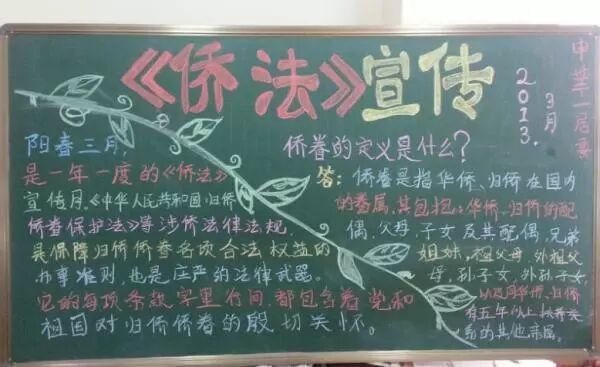 《侨法》宣传
申莘一居委
2013.
3月
阳春三月,
是一年一度的《侨法》
宣传月,《中华人民共和国归侨
侨眷保护法》等涉侨法律法规,
是保障归侨侨眷各项合法权益的
办事准则,也是庄严的法律武器。
它的每项条款字里行间都包含着党和
祖国对归侨侨眷的殷切关怀。
侨眷的定义是什么?
答:侨眷是指华侨、归侨在国内
的眷属,其包括:华侨、归侨的配
偶,父母,子女及其配偶,兄弟
姐妹,祖父母,外祖父
母,孙子女,外孙子女,
以及同华侨、归侨
有五年以上扶养关
系的其他亲属。